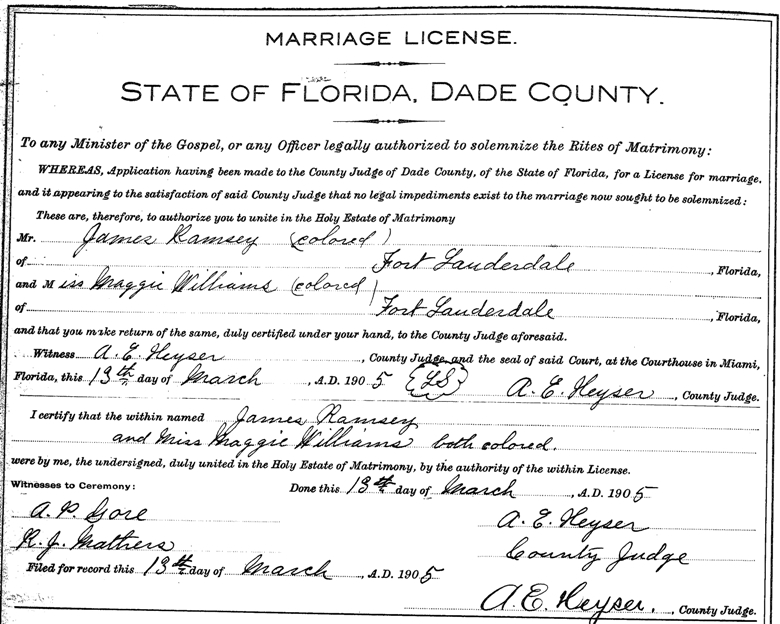 MARRIAGE LICENSE.
STATE OF FLORIDA, DADE COUNTY.
To any Minister of the Gospel, or any Officer legally authorized to solemnize the Rites of Matrimony:
WHEREAS, Application having been made to the County Judge of Dade County, of the State of Florida, for a License for marriage,
and it appearing to the satisfaction of said County Judge that no legal impediments exist to the marriage now sought to be solemnized:
These are, therefore, to authorize you to unite in the Holy Estate of Matrimony
Mr. James Ramsey (colored)
of Fort Lauderdale, Florida,
and Miss Maggie Williams (colored)
of Fort Lauderdale, Florida,
and that you make return of the same, duly certified under your hand, to the County Judge aforesaid.
Witness A. E. Heyser, County Judge, and the seal of said Court, at the Courthouse in Miami,
Florida, this 13th day of March, A.D. 1905 {LS} A. E. Heyser, County Judge.
I certify that the within named James Ramsey
and Miss Maggie Williams both colored.
were by me, the undersigned, duly united in the Holy Estate of Matrimony, by the authority of the within License.
Witnesses to Ceremony: Done this 13th day of March, A.D. 1905
A. P. Gore A. E. Heyser
R. J. Mathers County Judge
Filed for record this 13th day of March, A.D. 1905
A. E. Heyser., County Judge.